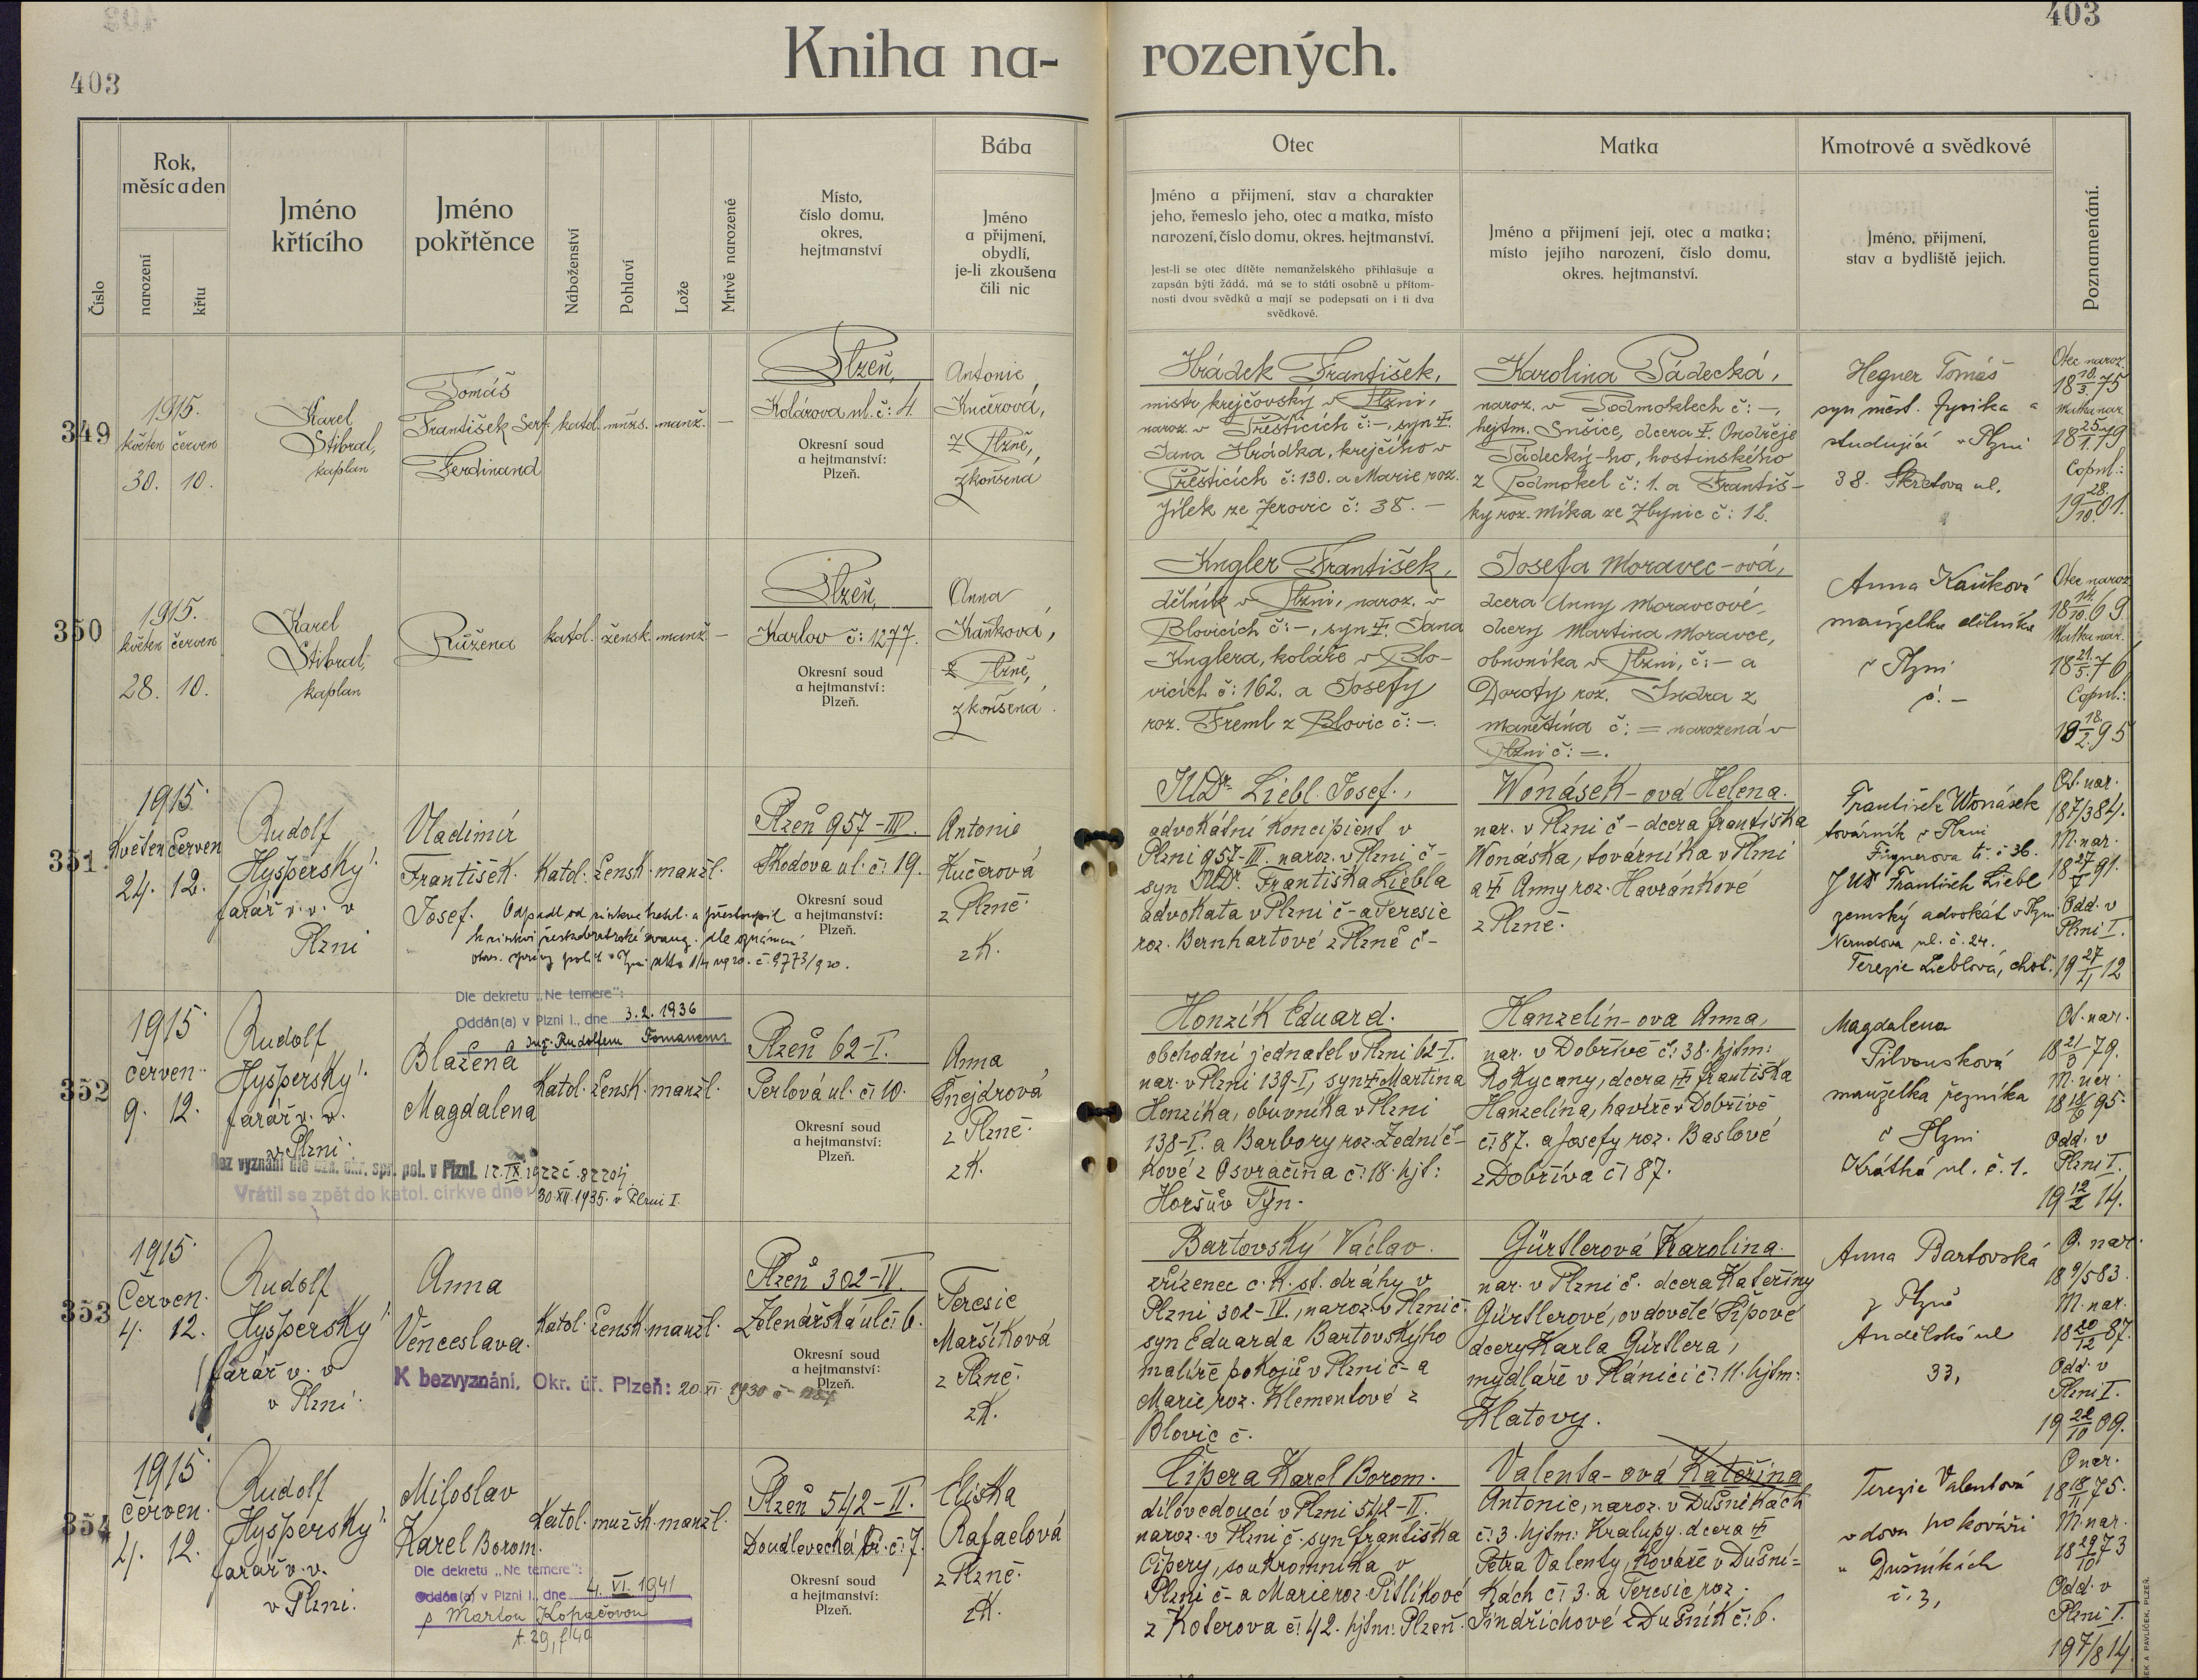 403
403
Kniha na- rozených.
Číslo
Rok,
měsíc a den
narození
křtu
Jméno
křtícího
Jméno
pokřtěnce
Náboženství
Pohlaví
Lože
Mrtvě narozené
Místo,
číslo domu,
okres,
hejtmanství
Bába
Jméno
a přijmení,
obydlí,
je-li zkoušena
čili nic
Otec
Jméno a přijmení, stav a charakter
jeho, řemeslo jeho, otec a matka, místo
narození, číslo domu, okres. hejtmanství.
Jest-li se otec dítěte nemanželského přihlašuje a
zapsán býti žádá, má se to státi osobně u přítom-
nosti dvou svědků a mají se podepsati on i ti dva
svědkové.
Matka
Jméno a přijmení její, otec a matka;
místo jejího narození, číslo domu,
okres. hejtmanství.
Kmotrové a svědkové
Jméno, přijmení,
stav a bydliště jejich.
Poznamenání.
349
1915.
květen červen
30. 10.
Karel
Stibral,
kaplan
Tomáš
František Serf.
Ferdinand
katol. mužs. manž. —
Plzeň,
Kolárova ul. č: 4.
Okresní soud
a hejtmanství:
Plzeň.
Antonie
Kučerová,
z Plzně,
zkoušená
Hrádek František,
mistr krejčovský v Plzni,
naroz. v Přešticích č: –, syn †
Jana Hrádka, krejčího v
Přešticích č: 130. a Marie roz.
Jílek ze Zerovic č: 38. –
Karolina Pádecká,
naroz. v Podmoklech č: –,
hejtm. Sušice, dcera † Ondřeje
Pádecký-ho, hostinského
z Podmokel č: 1. a Františ-
ky roz. Míka ze Zbynic č: 12.
Hegner Tomáš
syn měst. fysika a
studující v Plzni
38. Škretova ul.
Otec naroz.
18 10./3. 75
Matka nar.
18 25./1. 79
Copul.:
19 28./10. 01.
350
1915.
květen červen
28. 10.
Karel
Stibral,
kaplan
Růžena
katol. žensk. manž. —
Plzeň,
Karlov č: 1277.
Okresní soud
a hejtmanství:
Plzeň.
Anna
Kaňková,
z Plzně,
zkoušená.
Kugler František,
dělník v Plzni, naroz. v
Blovicích č: –, syn † Jana
Kuglera, koláře v Blo-
vicích č: 162. a Josefy
roz. Freml z Blovic č: –.
Josefa Moravec-ová,
dcera Anny Moravcové,
dcery Martina Moravce,
obuvníka v Plzni, č: – a
Doroty roz. Indra z
Manětína č: = narozená v
Plzni č: =.
Anna Kaůková
manželka dělníka
v Plzni
č. –
Otec naroz.
18 14./10. 69.
Matka nar.
18 21./5. 76
Copul.:
18./2. 95
351.
1915.
Květen Červen
24. 12.
Rudolf
Hyšperský
farář v. v. v
Plzni
Vladimír
František
Josef.
Katol. žensk. manžl.
Odpadl od církve katol. a přestoupil
k církvi českobratrské evang. dle oznámení
okres. správy polit. v Plzni č. 9773/920.
Plzeň 957-III.
Škodova ul. č. 19.
Okresní soud
a hejtmanství:
Plzeň.
Antonie
Kučerová
z Plzně.
zK.
JUDr. Liebl Josef.,
advokátní koncipient v
Plzni 957-III. naroz. v Plzni č –
syn JUDr. Františka Liebla
advokáta v Plzni č – a Teresie
roz. Bernhartové z Plzně č –
Wonásek-ová Helena.
nar. v Plzni č – dcera Františka
Wonáska, továrníka v Plzni
a † Anny roz. Havránkové
z Plzně.
František Wonásek
továrník v Plzni
Fügnerova tř. č 36.
JUDr František Liebl
zemský advokát v Plzni
Nerudova ul. č. 24.
Terezie Lieblová, choť.
Ot. nar.
18 7/3 84.
M. nar.
18 27/7 91.
Odd. v
Plzni I.
19 27/ 12
352
1915
Červen
9. 12.
Rudolf
Hyšperský
farář v. v.
v Plzni.
Dle dekretu „Ne temere":
Oddán(a) v Plzni I., dne 3. 2. 1936
s Ing. Rudolfem Tomanem
Blažena
Magdalena
Katol. žensk. manžl.
Bez vyznání dle ozn. okr. spr. pol. v Plzni. 12. IX. 1922 č. 82204.
Vrátil se zpět do katol. církve dne: 30. XII. 1935. v Plzni I.
Plzeň 62-I.
Perlová ul. č. 10.
Okresní soud
a hejtmanství:
Plzeň.
Anna
Šnejdrová
z Plzně.
zK.
Honzík Eduard.
obchodní jednatel v Plzni 62-I.
nar. v Plzni 139-I, syn † Martina
Honzíka, obuvníka v Plzni
138-I. a Barbory roz. Zedníč-
kové z Osvračína č. 18. hjt:
Horšův Týn.
Hanzelín-ova Anna,
nar. v Dobřívě č. 38. hjtm:
Rokycany, dcera † Františka
Hanzelína, havíře v Dobřívě
č. 87. a Josefy roz. Baslové
z Dobříva č. 87.
Magdalena
Pilvousková
manželka řezníka
v Plzni
Krátká ul. č. 1.
Ot. nar.
18 21/3 79.
M. nar.
18 18/6 95.
Odd. v
Plzni I.
19 12/2 14.
353
1915
Červen.
4. 12.
Rudolf
Hyšperský
farář v. v
v Plzni
Anna
Věnceslava.
Katol. žensk. manžl.
K bezvyznání, Okr. úř. Plzeň: 20. XI. 1930 č
Plzeň 302-IV.
Zelenářská ul č. 6.
Okresní soud
a hejtmanství:
Plzeň.
Teresie
Maršíková
z Plzně.
zK.
Bartovský Václav.
zřízenec c. k. st. dráhy v
Plzni 302-IV., naroz. v Plzni č.
syn Eduarda Bartovskýho
malíře pokojů v Plzni č – a
Marie roz. Klementové z
Blovic č.
Gürtlerová Karolina.
nar. v Plzni č. dcera Kateřiny
Gürtlerové, ovdovělé Šípové
dcery Karla Gürtlera,
mydláře v Plánici č. 11. hjtm:
Klatovy.
Anna Bartovská
z Plzně
Andělská ul
33,
O. nar.
18 9/5 83.
M. nar.
18 20/12 87.
Odd. v
Plzni I.
19 22/10 09.
354
1915
Červen.
4. 12.
Rudolf
Hyšperský
farář v. v.
v Plzni.
Miloslav
Karel Borom.
Katol. mužsk. manžl.
Dle dekretu „Ne temere":
Oddán(a) v Plzni I., dne 4. VI. 1941
s Martou Kopačovou
t. 29, f 40
Plzeň 542-II.
Doudlevecká tř. č. 7.
Okresní soud
a hejtmanství:
Plzeň.
Eliška
Rafaelová
z Plzně.
zK.
Čipera Karel Borom.
dílovedoucí v Plzni 542-II.
naroz. v Plzni č. syn Františka
Čipery, soukromníka v
Plzni č – a Marie roz. Pitlíkové
z Koterova č. 42. hjtm: Plzeň.
Valenta-ová Kateřina
Antonie, naroz. v Dušníkách
č. 3. hjtm: Kralupy. dcera †
Petra Valenty, kováře v Dušní=
kách č. 3. a Teresie roz.
Jindřichové z Dušník č. 6.
Terezie Valentová
vdova po kováři
v Dušníkách
č. 3,
O nar.
18 18/11 75.
M. nar.
18 29/10 73
Odd. v
Plzni I.
19 7/8 14.
EK A PAVLÍČEK, PLZEŇ.